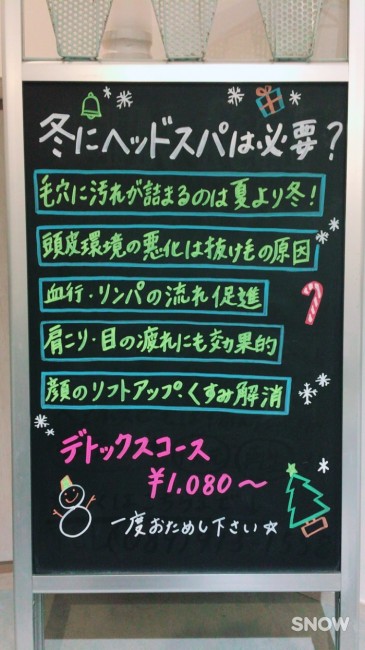 冬にヘッドスパは必要?
毛穴に汚れが詰まるのは夏より冬!
頭皮環境の悪化は抜け毛の原因
血行・リンパの流れ促進
肩こり・目の疲れにも効果的
顔のリフトアップ・くすみ解消
デトックスコース
¥1,080～
一度おためし下さい☆
SNOW